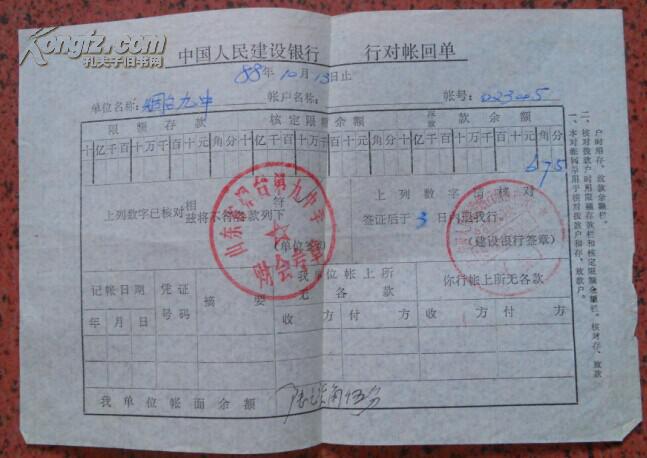 Kongfz.com
孔夫子旧书网
中国人民建设银行 行对帐回单
88年10月13日止
单位名称：烟台九中 帐户名称： 帐号：023005
限额存款 核定限额余额 存放款余额
十亿千百十万千百十元角分 十亿千百十万千百十元角分 十亿千百十万千百十元角分
675
上列数字已核对相符
兹将不符各款列下
(单位签章)
上列数字请核对
签证后于3日内退我行。
(建设银行签章)
山东省烟台第九中学
财会专章
记帐日期 凭证号码 摘要 我单位帐上所无各款 你行帐上所无各款
年 月 日 收方 付方 收方 付方
我单位帐面余额 陆元柒角伍分
一、本对帐回单用于核对拨款户和存、放款户。
二、核对拨款户时用限额存款栏和核定限额余额栏。核对存、放款
户时用存、放款余额栏。